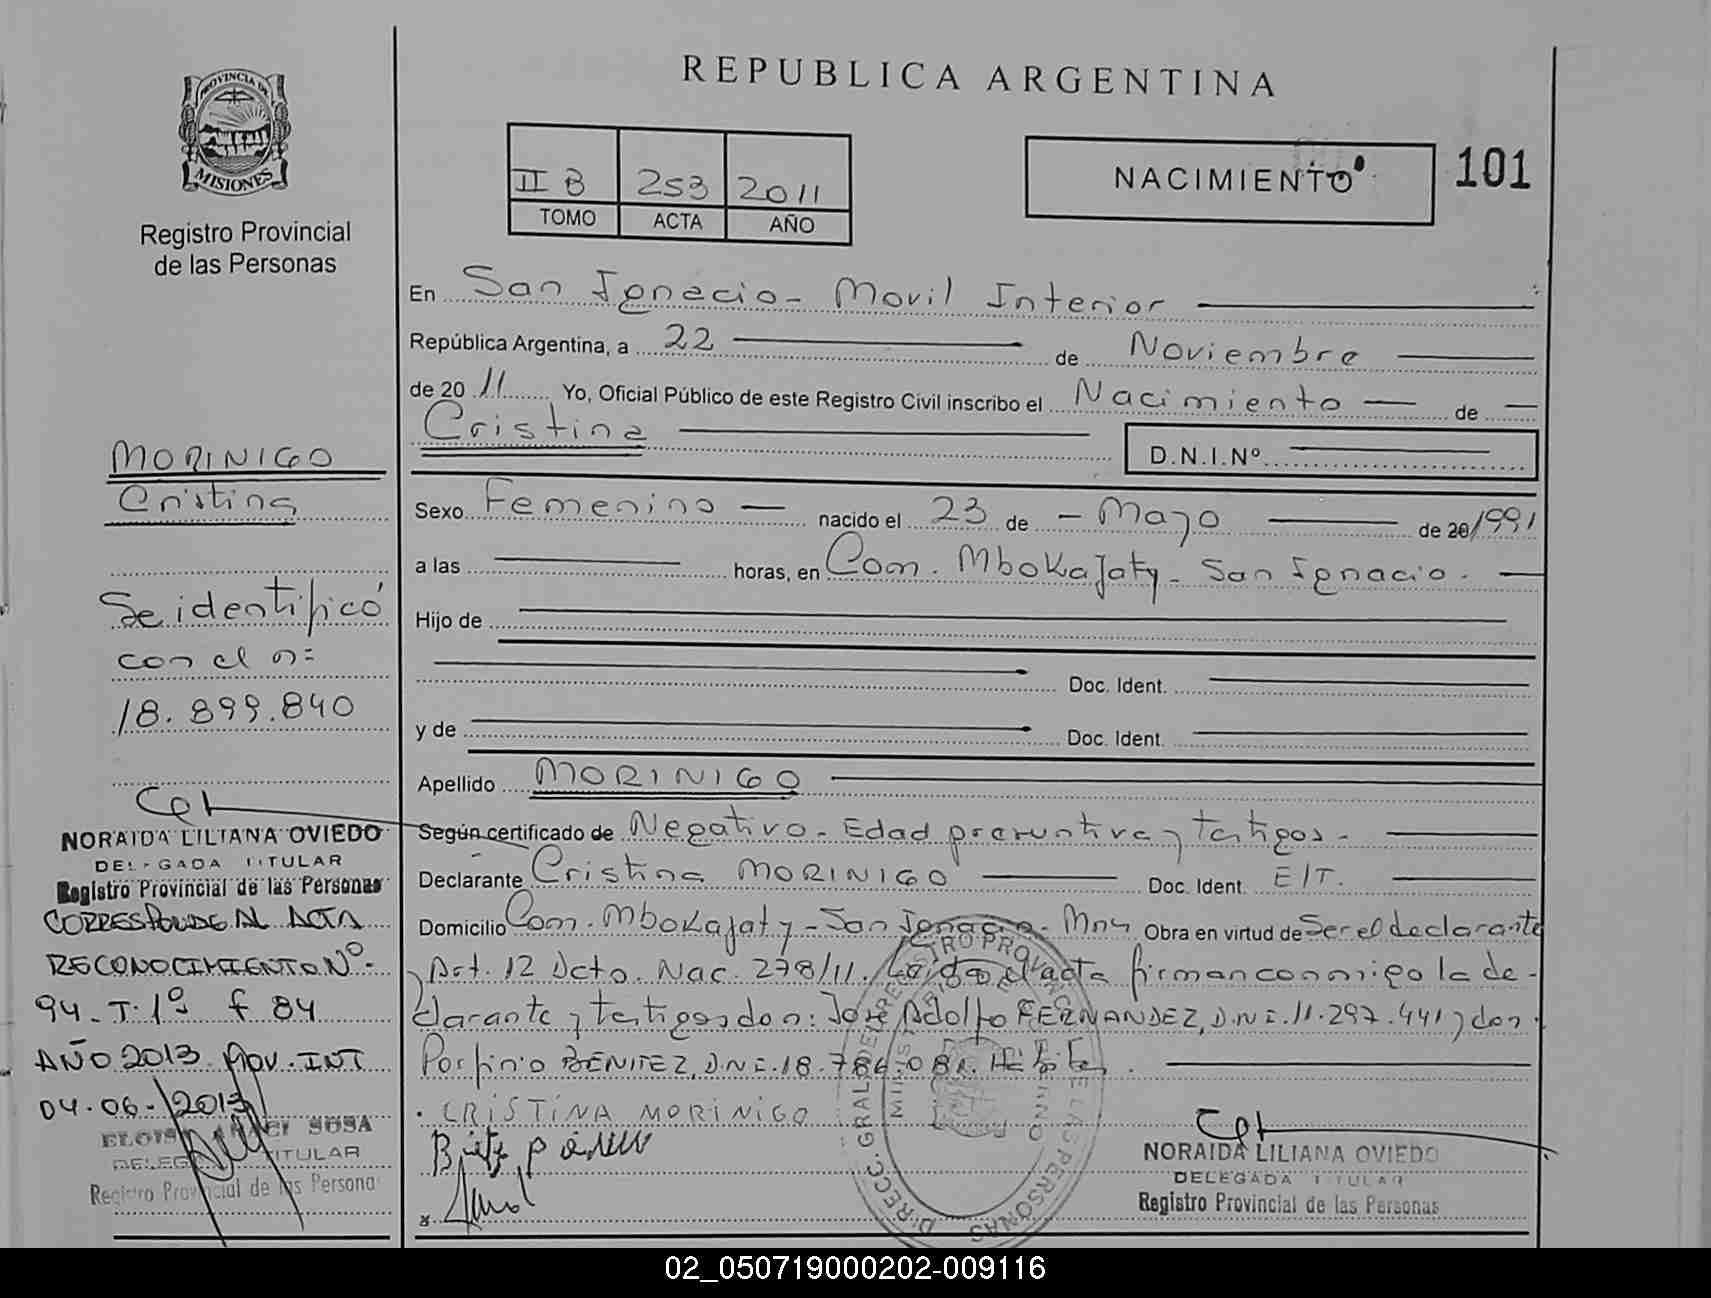 PROVINCIA DE
MISIONES
Registro Provincial
de las Personas
MORINIGO
Cristina
Se identificó
con el n=
18.899.840
NORAIDA LILIANA OVIEDO
DELEGADA TITULAR
Registro Provincial de las Personas
CORRESPONDE AL ACTA
RECONOCIMIENTO Nº-
94-T.1º f 84
AÑO 2013 Mov. INT
04-06-2013
ELOISA SOSA
DELEGADA TITULAR
Registro Provincial de las Personas
REPUBLICA ARGENTINA
II B 253 2011
TOMO ACTA AÑO
NACIMIENTO 101
En San Ignacio - Movil Interior
República Argentina, a 22 de Noviembre
de 20 11 Yo, Oficial Público de este Registro Civil inscribo el Nacimiento de
Cristina D.N.I.Nº
Sexo Femenino nacido el 23 de - Mayo de 20/1991
a las horas, en Com. Mbokajaty - San Ignacio.
Hijo de
Doc. Ident.
y de Doc. Ident.
Apellido MORINIGO
Según certificado de Negativo - Edad presuntiva y testigos -
Declarante Cristina MORINIGO Doc. Ident. E/T.
Domicilio Com. Mbokajaty - San Ignacio - Mnes Obra en virtud de Ser el declarante
Art. 12 Dcto. Nac. 278/11. Leida el acta firman conmigo la de-
clarante y testigos don: José Adolfo FERNANDEZ, D.N.I. 11.297.441 y don
Porfirio BENITEZ, D.N.I. 18.786.081.
CRISTINA MORINIGO
NORAIDA LILIANA OVIEDO
DELEGADA TITULAR
Registro Provincial de las Personas
02_050719000202-009116